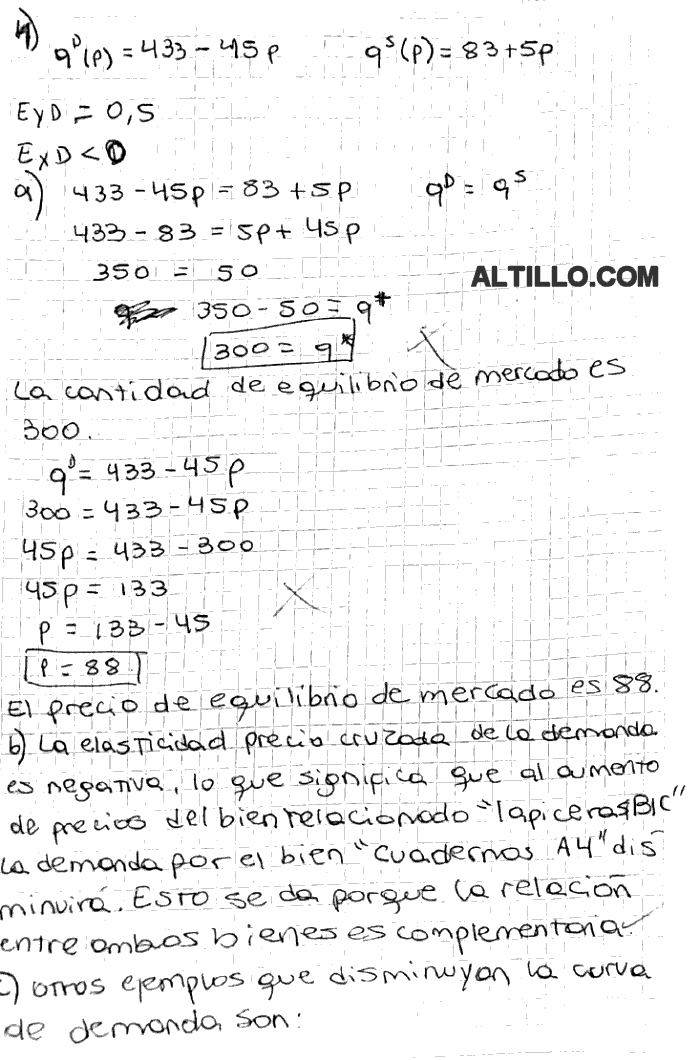 4) q^D(p) = 433 - 45p q^S(p) = 83 + 5p
EyD = 0,5
ExD < 0
a) 433 - 45p = 83 + 5p q^D = q^S
433 - 83 = 5p + 45p
350 = 50
ALTILLO.COM
350 - 50 = q*
300 = q*
La cantidad de equilibrio de mercado es
300.
q^D = 433 - 45p
300 = 433 - 45p
45p = 433 - 300
45p = 133
p = 133 - 45
P = 88
El precio de equilibrio de mercado es 88.
b) La elasticidad precio cruzada de la demanda
es negativa, lo que significa que al aumento
de precios del bien relacionado "lapiceras BIC"
La demanda por el bien "cuadernos A4" dis
minuirá. Esto se da porque la relación
entre ambos bienes es complementaria.
c) otros ejemplos que disminuyan la curva
de demanda son: